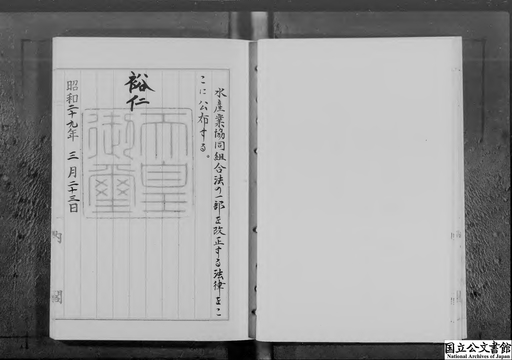 水産業協同組合法の一部を改正する法律をこ
こに公布する。
裕仁
天皇
御璽
昭和二十九年 三月二十三日
内閣
国立公文書館
National Archives of Japan